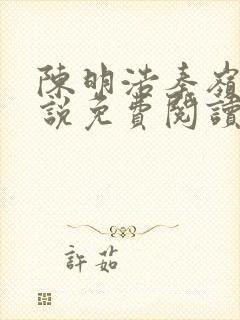 陳明浩秦嶺
說免費閱讀
許茹